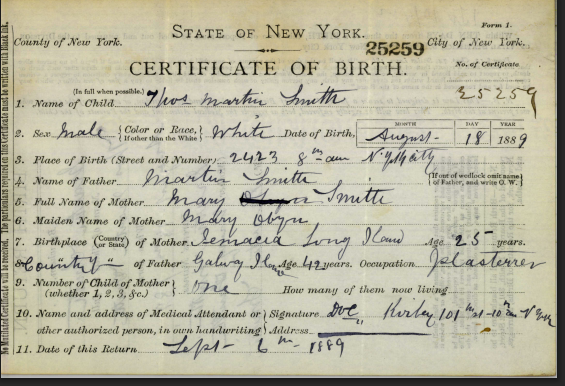 Form 1.
STATE OF NEW YORK.
County of New York. 25259 City of New York.
CERTIFICATE OF BIRTH.
No. of Certificate
25259
(In full when possible.)
1. Name of Child Thos Martin Smith
2. Sex Male { Color or Race, If other than the White } White Date of Birth, MONTH August DAY 18 YEAR 1889
3. Place of Birth (Street and Number) 2423 8th av N.Y. City
4. Name of Father Martin Smith { If out of wedlock omit name of Father, and write O. W. }
5. Full Name of Mother Mary Smith
6. Maiden Name of Mother Mary
7. Birthplace (Country or State) of Mother Jemacia Long Iland Age 25 years.
8 Country " of Father Galway Age 42 years. Occupation Plasterrer
9. Number of Child of Mother (whether 1, 2, 3, &c.) } one How many of them now living
10. Name and address of Medical Attendant or other authorized person, in own handwriting } Signature Doc Kirby 101
Address
11. Date of this Return Sept 6th 1889